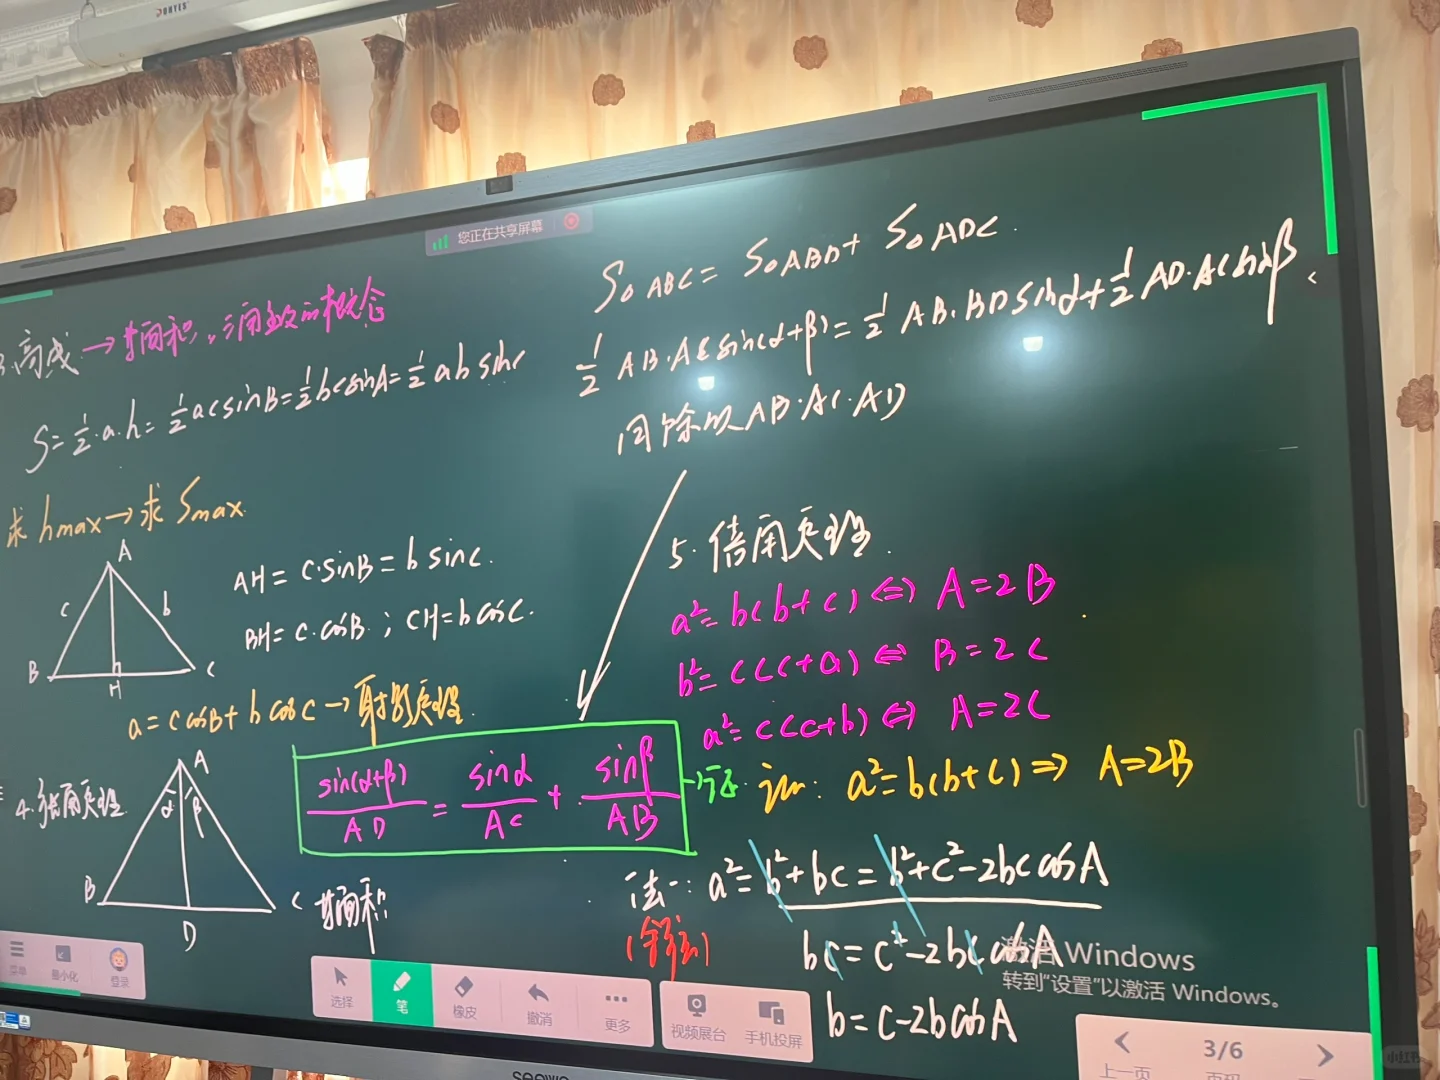 您正在共享屏幕
3.高线→求面积,三角函数的概念
S=½·a·h=½acsinB=½bcsinA=½absinC
求hmax→求Smax
A
c
b
B
H
C
AH=c·sinB=bsinC.
BH=c·cosB.;CH=bcosC.
a=ccosB+bcosC→射影定理
4.张角定理
A
α
β
B
D
C
求面积
S△ABC=S△ABD+S△ADC.
½AB·ACsin(α+β)=½AB·BDsinα+½AD·ACsinβ
同除以AB·AC·AD
sin(α+β)/AD=sinα/AC+sinβ/AB
→证.
5.倍角定理.
a²=b(b+c)⇔A=2B
b²=c(c+a)⇔B=2C
a²=c(c+b)⇔A=2C
证:a²=b(b+c)⇒A=2B
法一:a²=b²+bc=b²+c²-2bccosA
bc=c²-2bccosA
b=c-2bcosA
激活 Windows
转到"设置"以激活 Windows。
菜单
最小化
登录
选择
笔
橡皮
撤消
更多
视频展台
手机投屏
3/6
上一页
页码
seewo
小红书